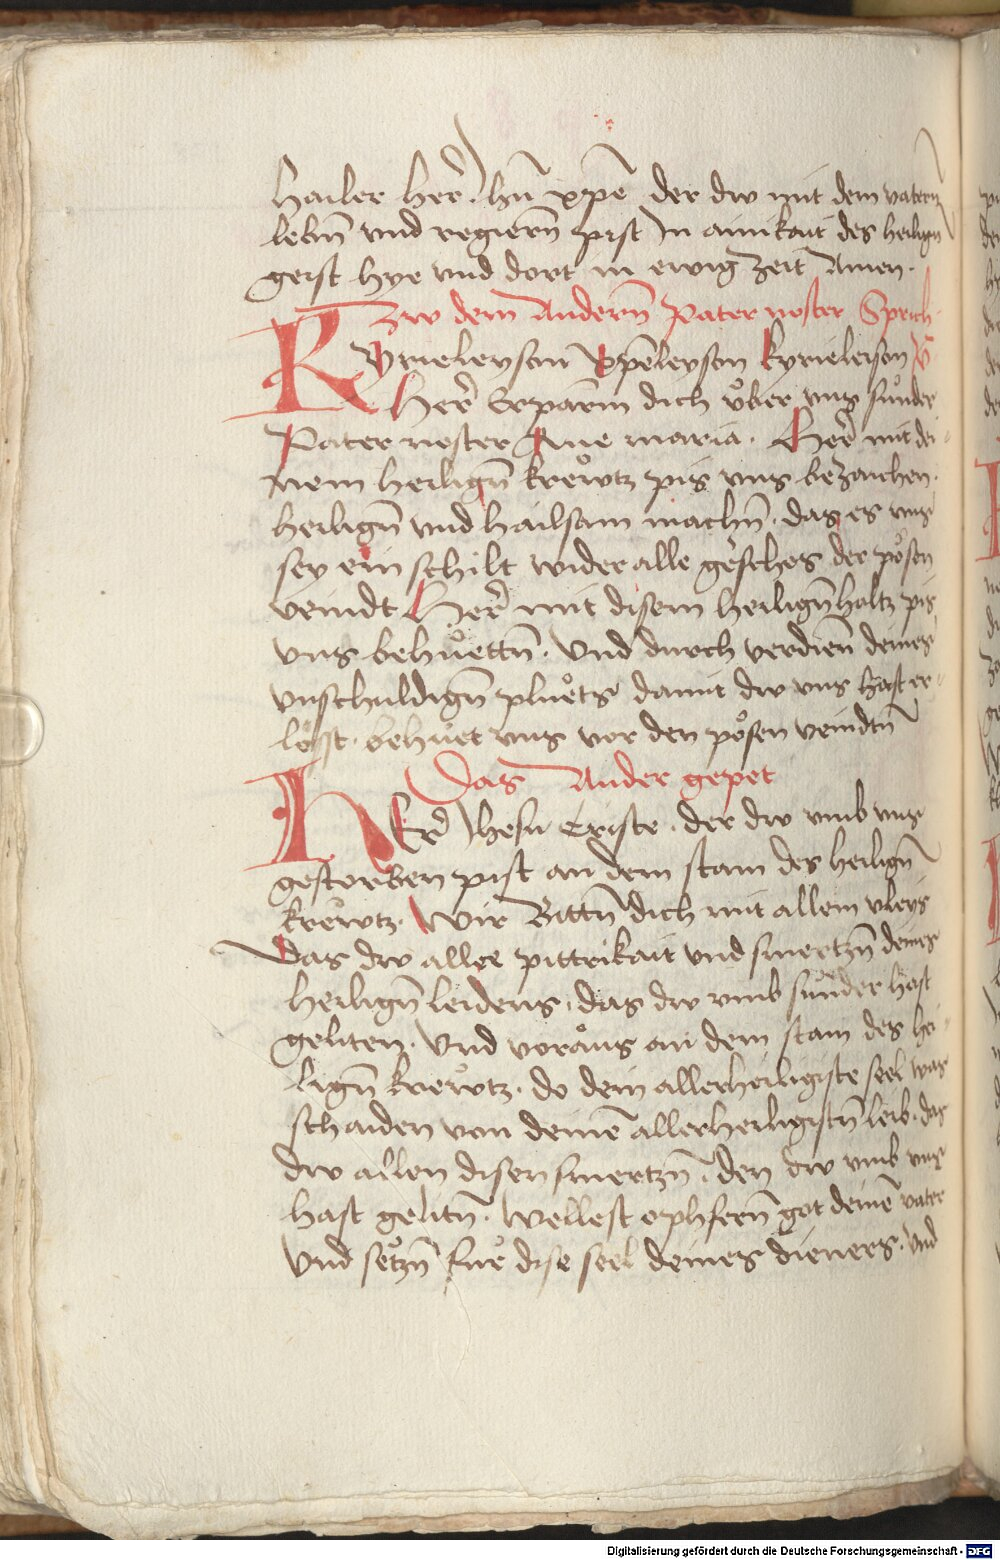 hailer herr Jhu xpe der dw mit dem vatern
lebm̄ vnd regierñ pist In ainikait des heiligñ
geist hye vnd dort in ewig zeit Amen.
Zw dem Anderñ Pater noster Sprich
Kyrieleyson Xpeleyson kyrieleison
Herr Erparm dich vͦber vns sunder
Pater noster Aue maria. Herr mit dei
nem heiligñ krewtz pis vns bezaichen.
heiligñ vnd hailsam machñ. das es vns
sey ein schilt wider alle geschos der pösen
veindt Herr mit disem heiligñ holtz pis
vns behuettñ. Vnd durch verdien deines
vnschuldigñ pluets damit dw vns hast er
löst. behuet vns vor den pösen veindtñ
Das Ander gepet
HErr Jhesu Criste. der dw vmb vns
gestorben pist an dem stam des heiligñ
krewtz. Wir Bittñ dich mit allem vleys
Das dw aller pittrikait vnd smertzñ deines
heiligñ leidens. das dw vmb sunder hast
geliten. Vnd voraus an dem stam des hei
ligñ krewtz. do dein allerheiligiste seel was
schaiden von deinē allerheiligistñ leib. das
dw allen disen smertzñ. den dw vmb vns
hast gelitñ. wellest ophferñ got deinē vater
Vnd setzñ fur dise seel deines dieners. vnd
Digitalisierung gefördert durch die Deutsche Forschungsgemeinschaft - DFG